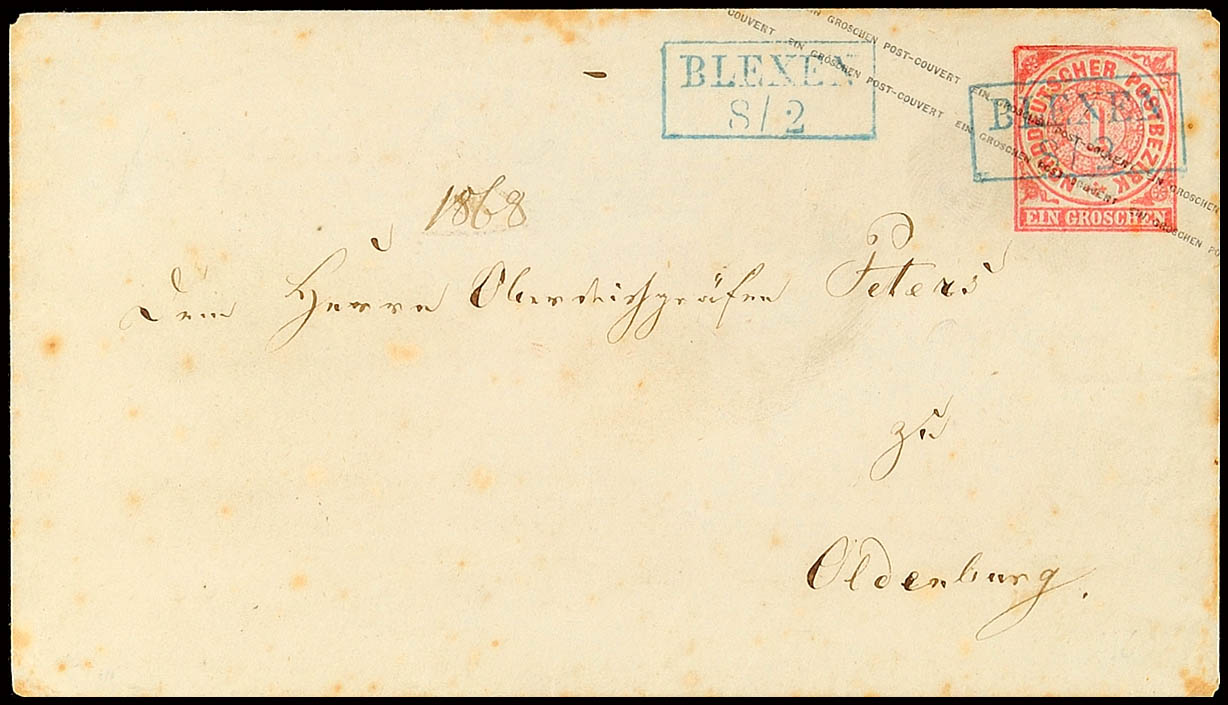 COUVERT EIN GROSCHEN POST-COUVERT EIN GROSCHEN POST-COUVERT EIN GROSCHEN
EIN GROSCHEN POST-COUVERT EIN GROSCHEN POST-COUVERT EIN GROSCHEN PO
BLEXEN
8/2
NORDDEUTSCHER POSTBEZIRK
1
EIN GROSCHEN
BLEXEN
8/2
1868
Dem Herrn Oberdeichgräfen Peters
zu
Oldenburg.